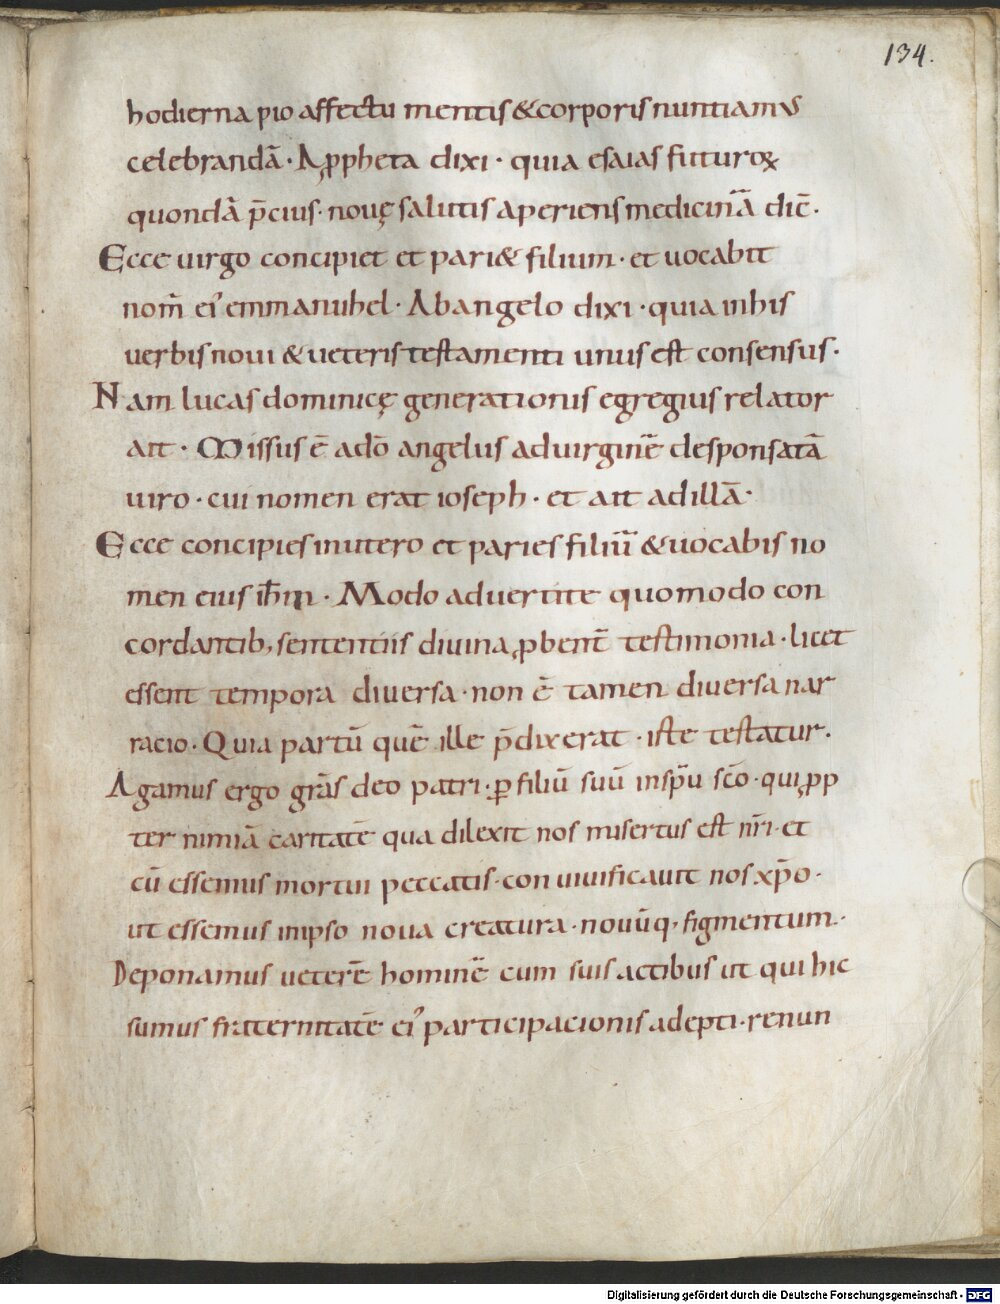 134.
hodierna pio affectu mentis & corporis nuntiamus
celebrandā · A ꝓpheta dixi · quia esaias futuroꝝ
quondā p̄cius · nouę salutis aperiens medicinā dic̄ ·
Ecce uirgo concipiet et pari& filium · et uocabit
nom̄ ei᾽ emmanuhel · Ab angelo dixi · quia in his
uerbis noui & ueteris testamenti unus est consensus ·
Nam lucas dominicę generationis egregius relator
ait · Missus ē ad̄o angelus ad uirginē desponsatā
uiro · cui nomen erat ioseph · et ait ad illā ·
Ecce concipies in utero et paries filiū & uocabis no
men eius ih̄m · Modo aduertite quomodo con
cordantib; sententiis diuina ꝓbent̄ testimonia · licet
essent tempora diuersa · non ē tamen diuersa nar
racio · Quia partū quē ille p̄dixerat · iste testatur ·
Agamus ergo gr̄as deo patri · ꝑ filiū suū in sp̄u sc̄o · qui ꝓp
ter nimiā caritatē qua dilexit nos misertus est nr̄i · et
cū essemus mortui peccatis · conuiuificauit nos xp̄o ·
ut essemus in ipso noua creatura · nouūq; figmentum ·
Deponamus ueterē hominē cum suis actibus ut qui hic
sumus fraternitatē ei᾽ participacionis adepti · renun
Digitalisierung gefördert durch die Deutsche Forschungsgemeinschaft - DFG